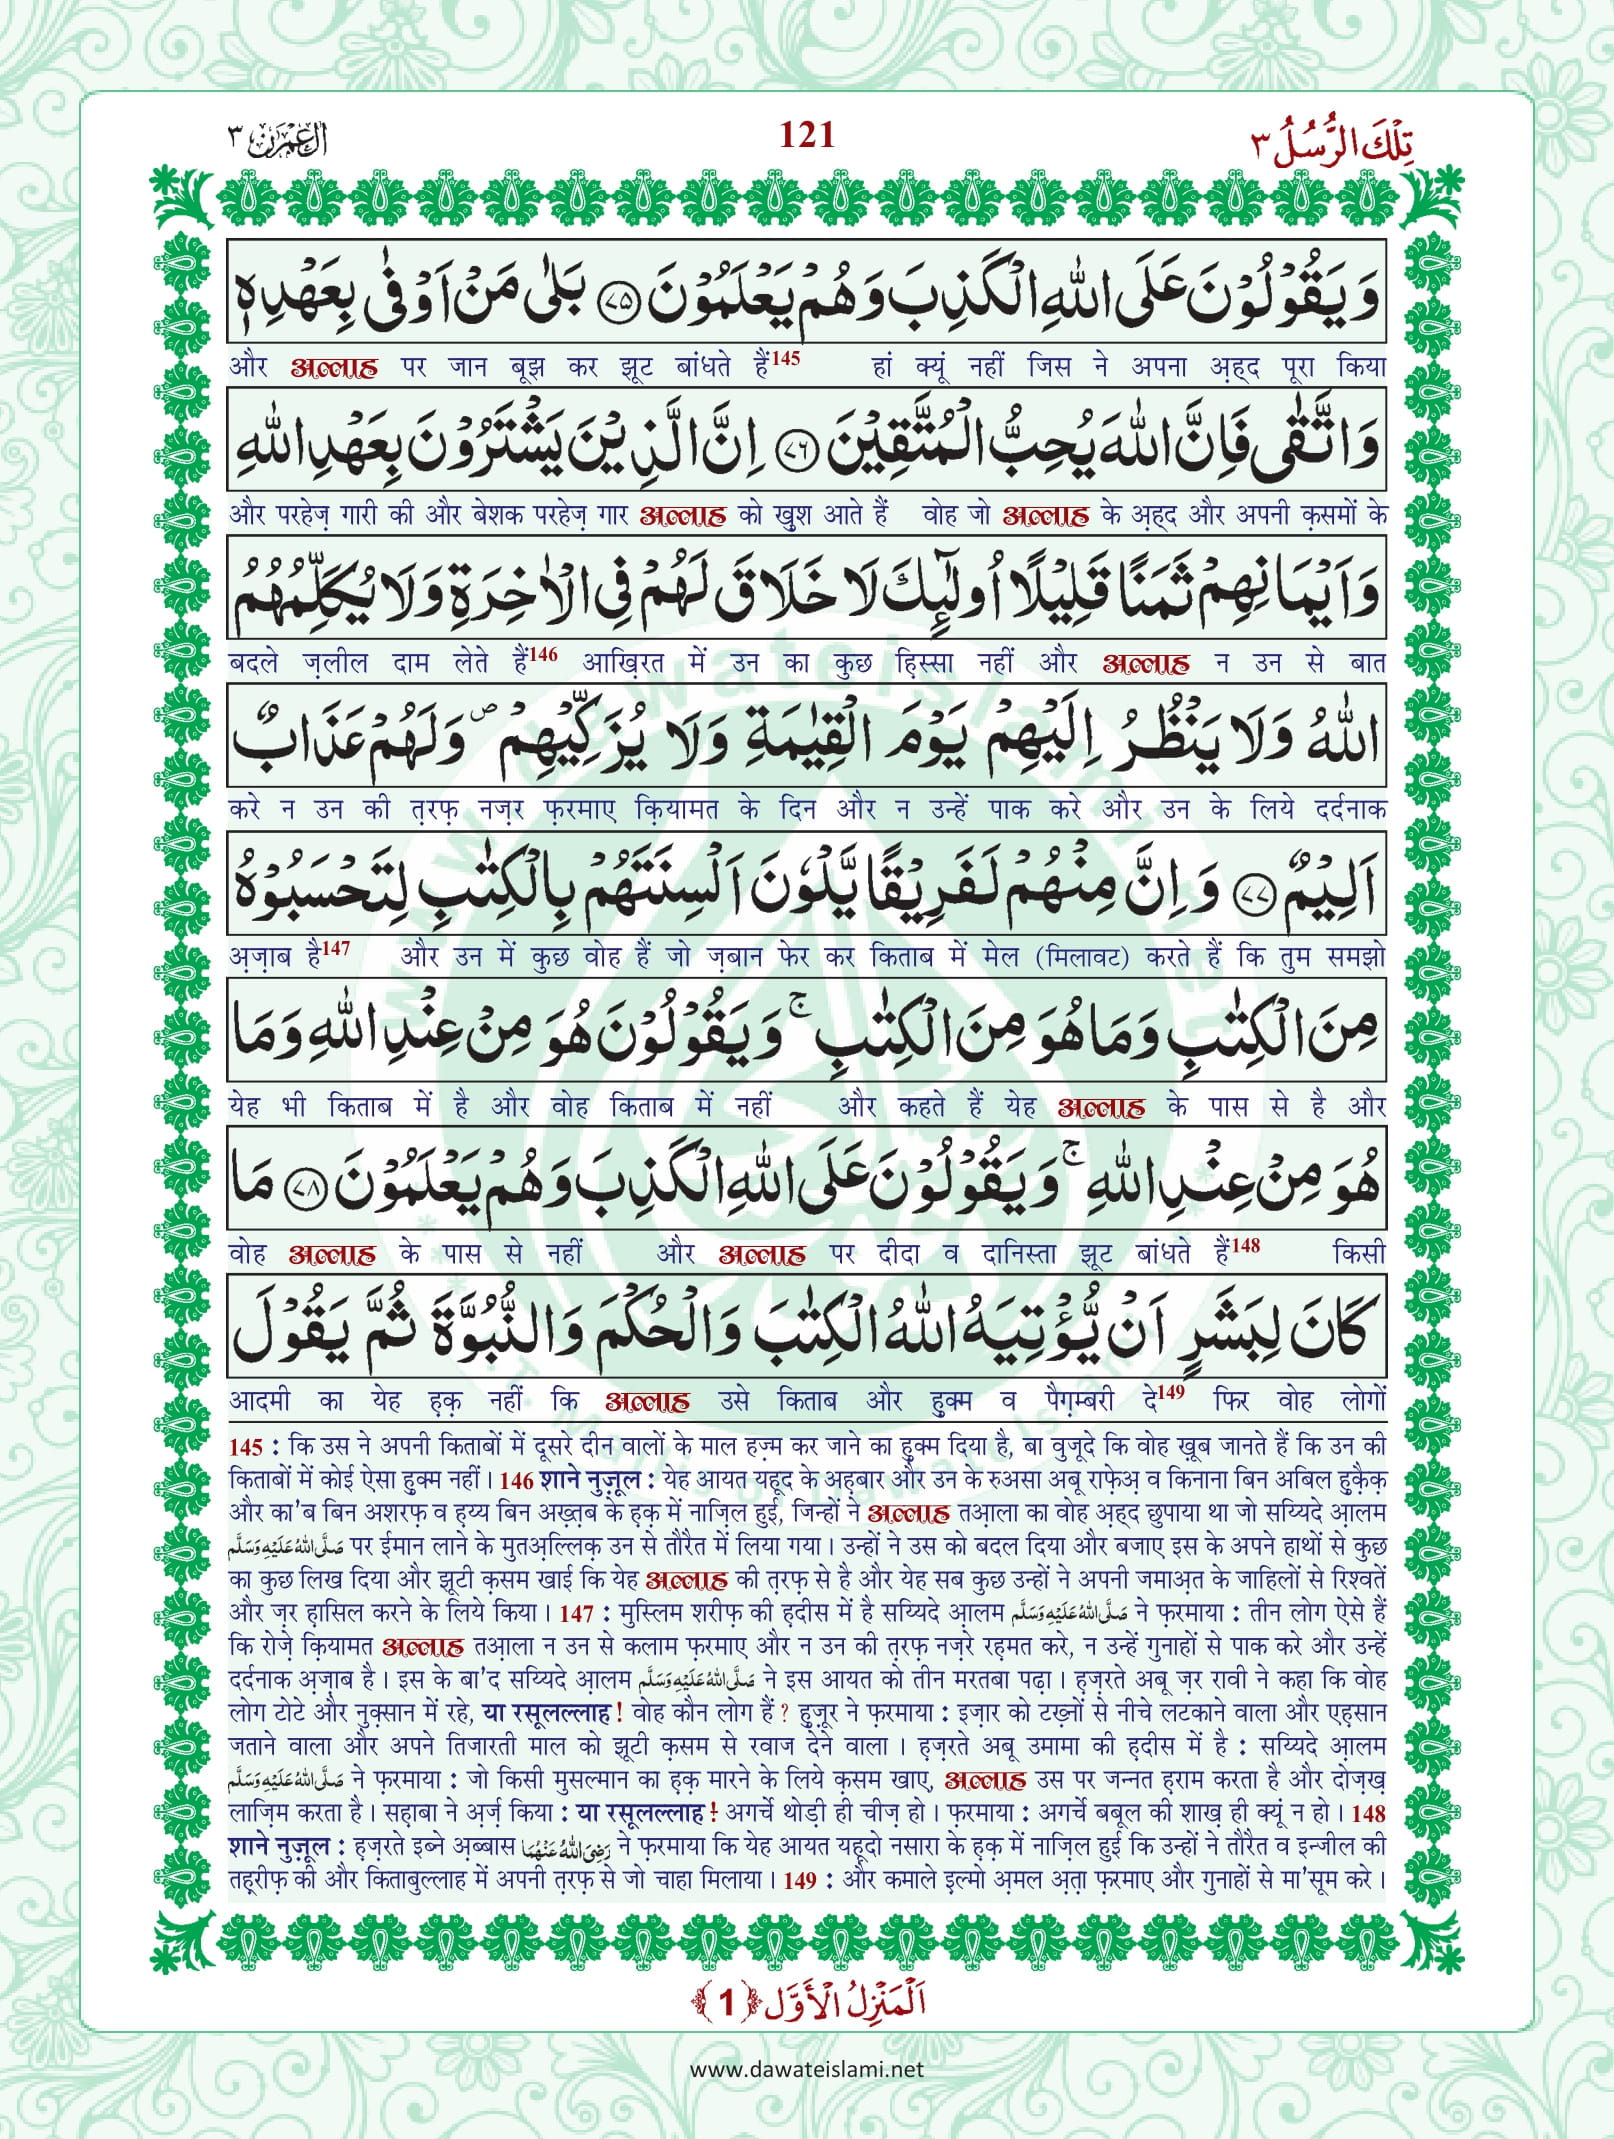 اٰل عمرٰن ٣
121
تِلْكَ الرُّسُلُ ٣
وَيَقُوْلُوْنَ عَلَى اللّٰهِ الْكَذِبَ وَهُمْ يَعْلَمُوْنَ ﴿۷۵﴾ بَلٰى مَنْ اَوْفٰى بِعَهْدِهٖ
और अल्लाह पर जान बूझ कर झूट बांधते हैं145 हां क्यूं नहीं जिस ने अपना अ़ह्द पूरा किया
وَاتَّقٰى فَاِنَّ اللّٰهَ يُحِبُّ الْمُتَّقِيْنَ ﴿۷۶﴾ اِنَّ الَّذِيْنَ يَشْتَرُوْنَ بِعَهْدِ اللّٰهِ
और परहेज़ गारी की और बेशक परहेज़ गार अल्लाह को खुश आते हैं वोह जो अल्लाह के अ़ह्द और अपनी क़समों के
وَاَيْمَانِهِمْ ثَمَنًا قَلِيْلًا اُولٰٓئِكَ لَا خَلَاقَ لَهُمْ فِى الْاٰخِرَةِ وَلَا يُكَلِّمُهُمُ
बदले ज़लील दाम लेते हैं146 आख़िरत में उन का कुछ हि़स्सा नहीं और अल्लाह न उन से बात
اللّٰهُ وَلَا يَنْظُرُ اِلَيْهِمْ يَوْمَ الْقِيٰمَةِ وَلَا يُزَكِّيْهِمْ ۪ وَلَهُمْ عَذَابٌ
करे न उन की त़रफ़ नज़र फ़रमाए क़ियामत के दिन और न उन्हें पाक करे और उन के लिये दर्दनाक
اَلِيْمٌ ﴿۷۷﴾ وَاِنَّ مِنْهُمْ لَفَرِيْقًا يَّلْوٗنَ اَلْسِنَتَهُمْ بِالْكِتٰبِ لِتَحْسَبُوْهُ
अ़ज़ाब है147 और उन में कुछ वोह हैं जो ज़बान फेर कर किताब में मेल (मिलावट) करते हैं कि तुम समझो
مِنَ الْكِتٰبِ وَمَا هُوَ مِنَ الْكِتٰبِ ۚ وَيَقُوْلُوْنَ هُوَ مِنْ عِنْدِ اللّٰهِ وَمَا
येह भी किताब में है और वोह किताब में नहीं और कहते हैं येह अल्लाह के पास से है और
هُوَ مِنْ عِنْدِ اللّٰهِ ۚ وَيَقُوْلُوْنَ عَلَى اللّٰهِ الْكَذِبَ وَهُمْ يَعْلَمُوْنَ ﴿۷۸﴾ مَا
वोह अल्लाह के पास से नहीं और अल्लाह पर दीदा व दानिस्ता झूट बांधते हैं148 किसी
كَانَ لِبَشَرٍ اَنْ يُّؤْتِيَهُ اللّٰهُ الْكِتٰبَ وَالْحُكْمَ وَالنُّبُوَّةَ ثُمَّ يَقُوْلَ
आदमी का येह ह़क़ नहीं कि अल्लाह उसे किताब और हु़क्म व पैग़म्बरी दे149 फिर वोह लोगों
145 : कि उस ने अपनी किताबों में दूसरे दीन वालों के माल हज़्म कर जाने का हु़क्म दिया है, बा वुजूदे कि वोह ख़ूब जानते हैं कि उन की
किताबों में कोई ऐसा हु़क्म नहीं। 146 शाने नुज़ूल : येह आयत यहूद के अह़बार और उन के रुअसा अबू राफ़ेअ़ व किनाना बिन अबिल हु़क़ैक़
और का'ब बिन अशरफ़ व हु़य्य बिन अख़्त़ब के ह़क़ में नाज़िल हुई, जिन्हों ने अल्लाह तआ़ला का वोह अ़ह्द छुपाया था जो सय्यिदे आ़लम
صَلَّى اللهُ عَلَيْهِ وَسَلَّم पर ईमान लाने के मुतअ़ल्लिक़ उन से तौरैत में लिया गया। उन्हों ने उस को बदल दिया और बजाए इस के अपने हाथों से कुछ
का कुछ लिख दिया और झूटी क़सम खाई कि येह अल्लाह की त़रफ़ से है और येह सब कुछ उन्हों ने अपनी जमाअ़त के जाहिलों से रिश्वतें
और ज़र ह़ासिल करने के लिये किया। 147 : मुस्लिम शरीफ़ की ह़दीस में है सय्यिदे आ़लम صَلَّى اللهُ عَلَيْهِ وَسَلَّم ने फ़रमाया : तीन लोग ऐसे हैं
कि रोज़े क़ियामत अल्लाह तआ़ला न उन से कलाम फ़रमाए और न उन की त़रफ़ नज़रे रह़मत करे, न उन्हें गुनाहों से पाक करे और उन्हें
दर्दनाक अ़ज़ाब है। इस के बा'द सय्यिदे आ़लम صَلَّى اللهُ عَلَيْهِ وَسَلَّم ने इस आयत को तीन मरतबा पढ़ा। ह़ज़रते अबू ज़र रावी ने कहा कि वोह
लोग टोटे और नुक़्सान में रहे, या रसूलल्लाह! वोह कौन लोग हैं? हु़ज़ूर ने फ़रमाया : इज़ार को टख़्नों से नीचे लटकाने वाला और एह़सान
जताने वाला और अपने तिजारती माल को झूटी क़सम से रवाज देने वाला। ह़ज़रते अबू उमामा की ह़दीस में है : सय्यिदे आ़लम
صَلَّى اللهُ عَلَيْهِ وَسَلَّم ने फ़रमाया : जो किसी मुसल्मान का ह़क़ मारने के लिये क़सम खाए, अल्लाह उस पर जन्नत ह़राम करता है और दोज़ख़
लाज़िम करता है। सह़ाबा ने अ़र्ज़ किया : या रसूलल्लाह! अगर्चे थोड़ी ही चीज़ हो। फ़रमाया : अगर्चे बबूल की शाख़ ही क्यूं न हो। 148
शाने नुज़ूल : ह़ज़रते इब्ने अ़ब्बास رَضِىَ اللهُ عَنْهُمَا ने फ़रमाया कि येह आयत यहूदो नसारा के ह़क़ में नाज़िल हुई कि उन्हों ने तौरैत व इन्जील की
तह़रीफ़ की और किताबुल्लाह में अपनी त़रफ़ से जो चाहा मिलाया। 149 : और कमाले इ़ल्मो अ़मल अ़त़ा फ़रमाए और गुनाहों से मा'सूम करे।
اَلْمَنْزِلُ الْاَوَّل ﴿1﴾
www.dawateislami.net